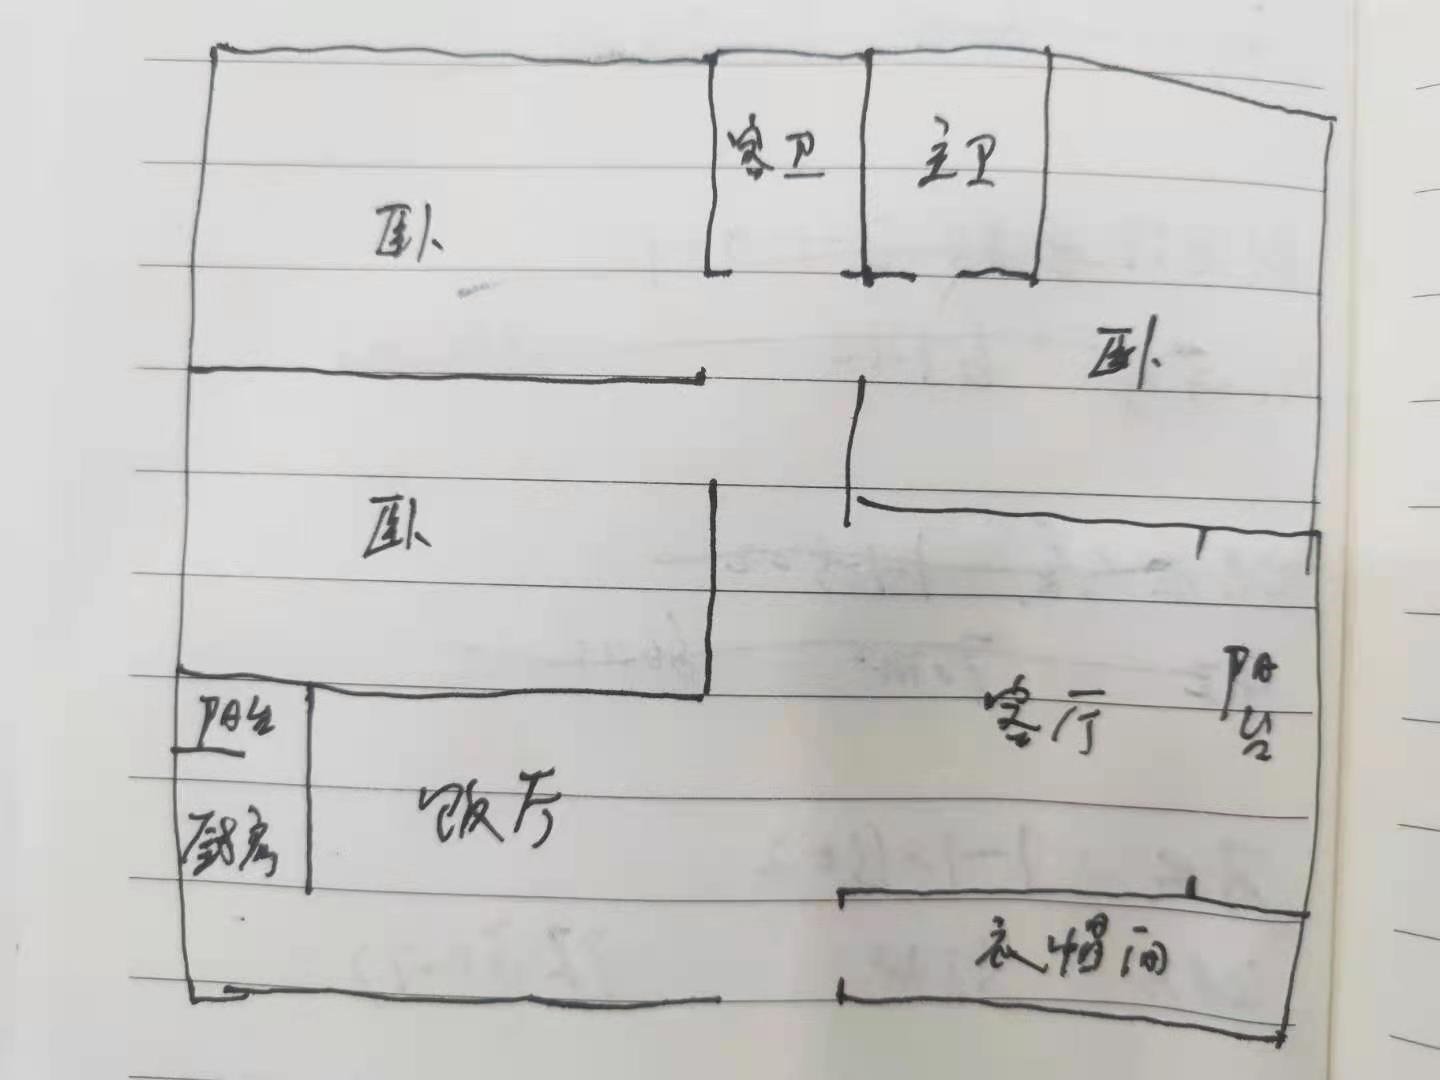 客卫
主卫
卧
卧
卧
阳台
客厅
阳台
饭厅
厨房
衣帽间